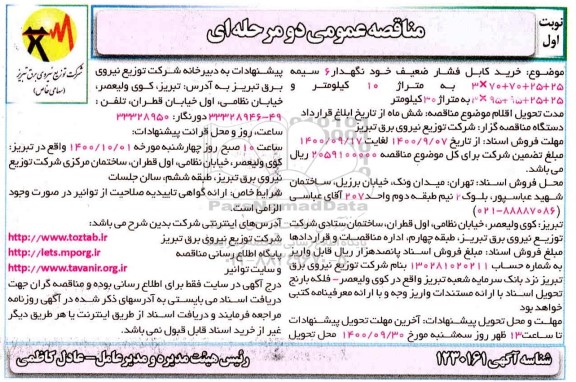 نوبت
اول
مناقصه عمومی دو مرحله‌ای
شرکت توزیع نیروی برق تبریز
(سهامی خاص)
موضوع: خرید کابل فشار ضعیف خود نگهدار ۶ سیمه
۳×۷۰+۷۰+۲۵+۲۵ به متراژ ۱۰ کیلومتر و
به متراژ ۳۰ کیلومتر
مدت تحویل اقلام موضوع مناقصه: شش ماه از تاریخ ابلاغ قرارداد
دستگاه مناقصه گزار: شرکت توزیع نیروی برق تبریز
مهلت فروش اسناد: از تاریخ ۱۴۰۰/۹/۰۷ لغایت ۱۴۰۰/۰۹/۱۷
مبلغ تضمین شرکت برای کل موضوع مناقصه ۲۰۵۹۱۰۰۰۰۰ ریال
می باشد.
محل فروش اسناد: تهران: میدان ونک، خیابان برزیل، ساختمان
شهید عباسپور، بلوک ۲ نیم طبقه دوم واحد ۲۰۷ آقای عباسی
(۰۲۱-۸۸۸۸۷۰۸۶)
تبریز: کوی ولیعصر، خیابان نظامی، اول قطران، ساختمان ستادی شرکت
توزیع نیروی برق تبریز، طبقه چهارم، اداره مناقصات و قراردادها
مبلغ فروش اسناد: مبلغ فروش اسناد پانصدهزار ریال قابل واریز
به شماره حساب ۱۳۰۲۸۱۰۲۰۲۱۱ بنام شرکت توزیع نیروی برق
تبریز نزد بانک سرمایه شعبه تبریز واقع در کوی ولیعصر- فلکه بارنج
تحویل اسناد با ارائه مستندات واریز وجه و با ارائه معرفینامه کتبی
خواهد بود
مهلت و محل تحویل پیشنهادات: آخرین مهلت تحویل پیشنهادات
تا ساعت ۱۳ ظهر روز سه‌شنبه مورخ ۱۴۰۰/۰۹/۳۰ محل تحویل
پیشنهادات به دبیرخانه شرکت توزیع نیروی
برق تبریز به آدرس: تبریز، کوی ولیعصر،
خیابان نظامی، اول خیابان قطران، تلفن :
۴۹-۳۳۳۲۸۹۴۶ دورنگار: ۳۳۳۲۸۹۵۰
ساعت، روز و محل قرائت پیشنهادات:
ساعت ۱۰ صبح روز چهارشنبه مورخه ۱۴۰۰/۱۰/۰۱ واقع در تبریز:
کوی ولیعصر، خیابان نظامی، اول قطران، ساختمان مرکزی شرکت توزیع
نیروی برق تبریز، طبقه ششم، سالن جلسات
شرایط خاص: ارائه گواهی تاییدیه صلاحیت از توانیر در صورت وجود
الزامی است.
آدرس‌های اینترنتی شرکت بدین شرح می باشد:
شرکت توزیع نیروی برق تبریز http://www.toztab.ir
پایگاه اطلاع رسانی مناقصه http://iets.mporg.ir
و سایت توانیر http://www.tavanir.org.ir
درج آگهی در سایت فقط برای اطلاع رسانی بوده و مناقصه گران جهت
دریافت اسناد می بایستی به آدرسهای ذکر شده در آگهی روزنامه
مراجعه فرمایند و دریافت اسناد از طریق اینترنت یا هر طریق دیگر
غیر از خرید اسناد قابل قبول نمی باشد.
شناسه آگهی ۱۲۳۰۱۶۱
رئیس هیئت مدیره و مدیرعامل- عادل کاظمی